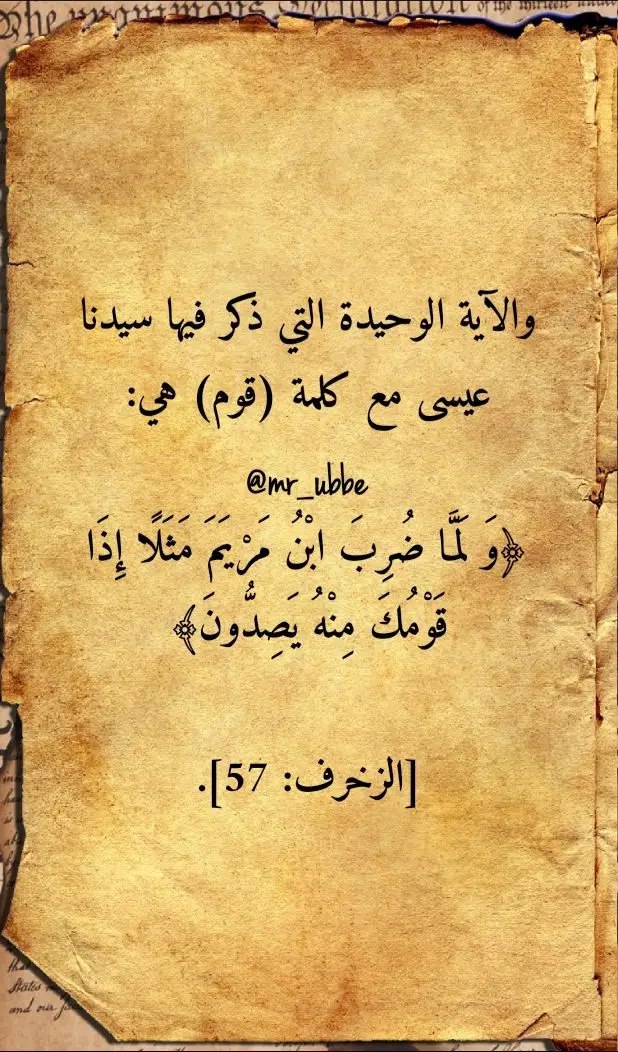 The unanimous Declaration of the thirteen united
والآية الوحيدة التي ذكر فيها سيدنا
عيسى مع كلمة (قوم) هي:
@mr_ubbe
﴿وَ لَمَّا ضُرِبَ ابْنُ مَرْيَمَ مَثَلًا إِذَا
قَوْمُكَ مِنْهُ يَصِدُّونَ﴾
[الزخرف: 57].
States
and our